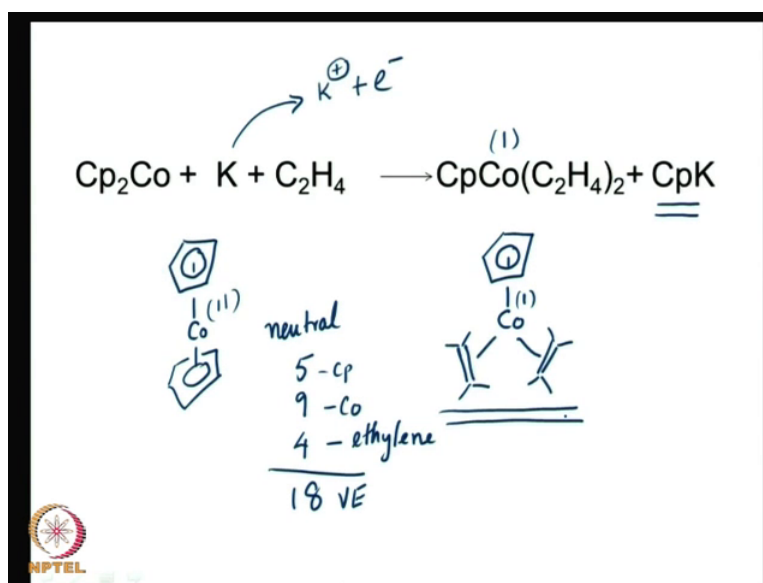 K⊕ + e⁻
(1)
Cp₂Co + K + C₂H₄ ⟶ CpCo(C₂H₄)₂ + CpK
(11)
Co
neutral
5 - Cp
9 - Co
4 - ethylene
18 VE
(1)
Co
NPTEL